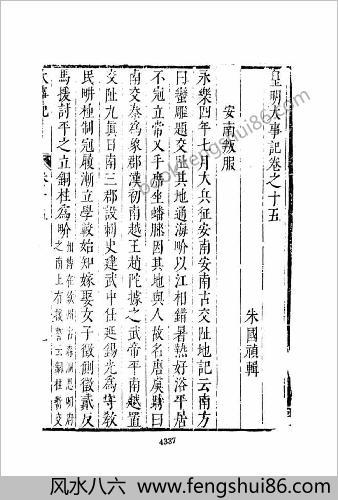 皇明大事記卷之十五
朱國禎輯
安南叛服
永樂四年七月大兵征安南安南古交阯地記云南方
曰蠻雕題交阯其地通海
以江相錯暑熱好浴平居
不冠立常叉手席坐蟠膝因其地與人故名唐虞時曰
南交秦為象郡漢初南越王趙陀據之武帝平南越置
交阯九真日南三郡設刺史建武中任延錫光為守教
民耕種制冠履漸立學校始知嫁娶女子徵側徵貳反
馬援討平之立銅柱為
4337
www.fengshui86.com
风水八六 www.fengshui86.com